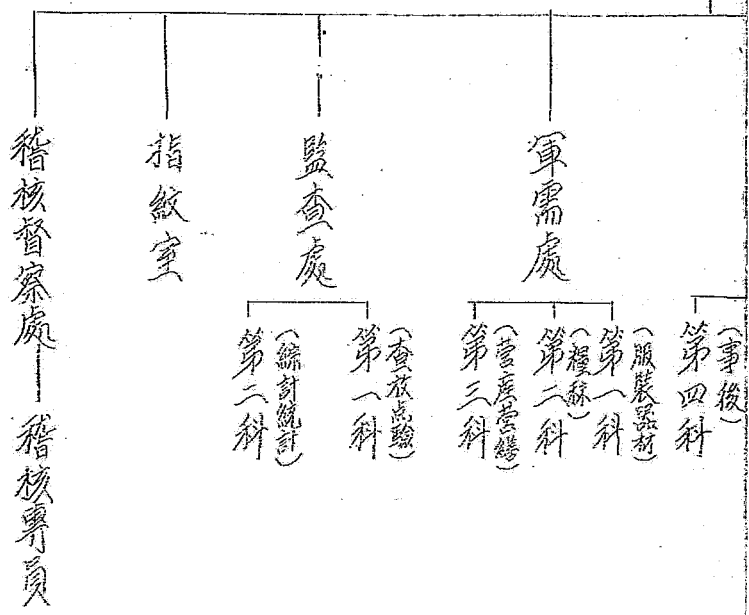 (事後)
第四科
軍需處
(服裝器材)
第一科
(糧秣)
第二科
(营產营繕)
第三科
監查處
(查放点驗)
第一科
(綜計統計)
第二科
指紋室
稽核督察處
稽核專員